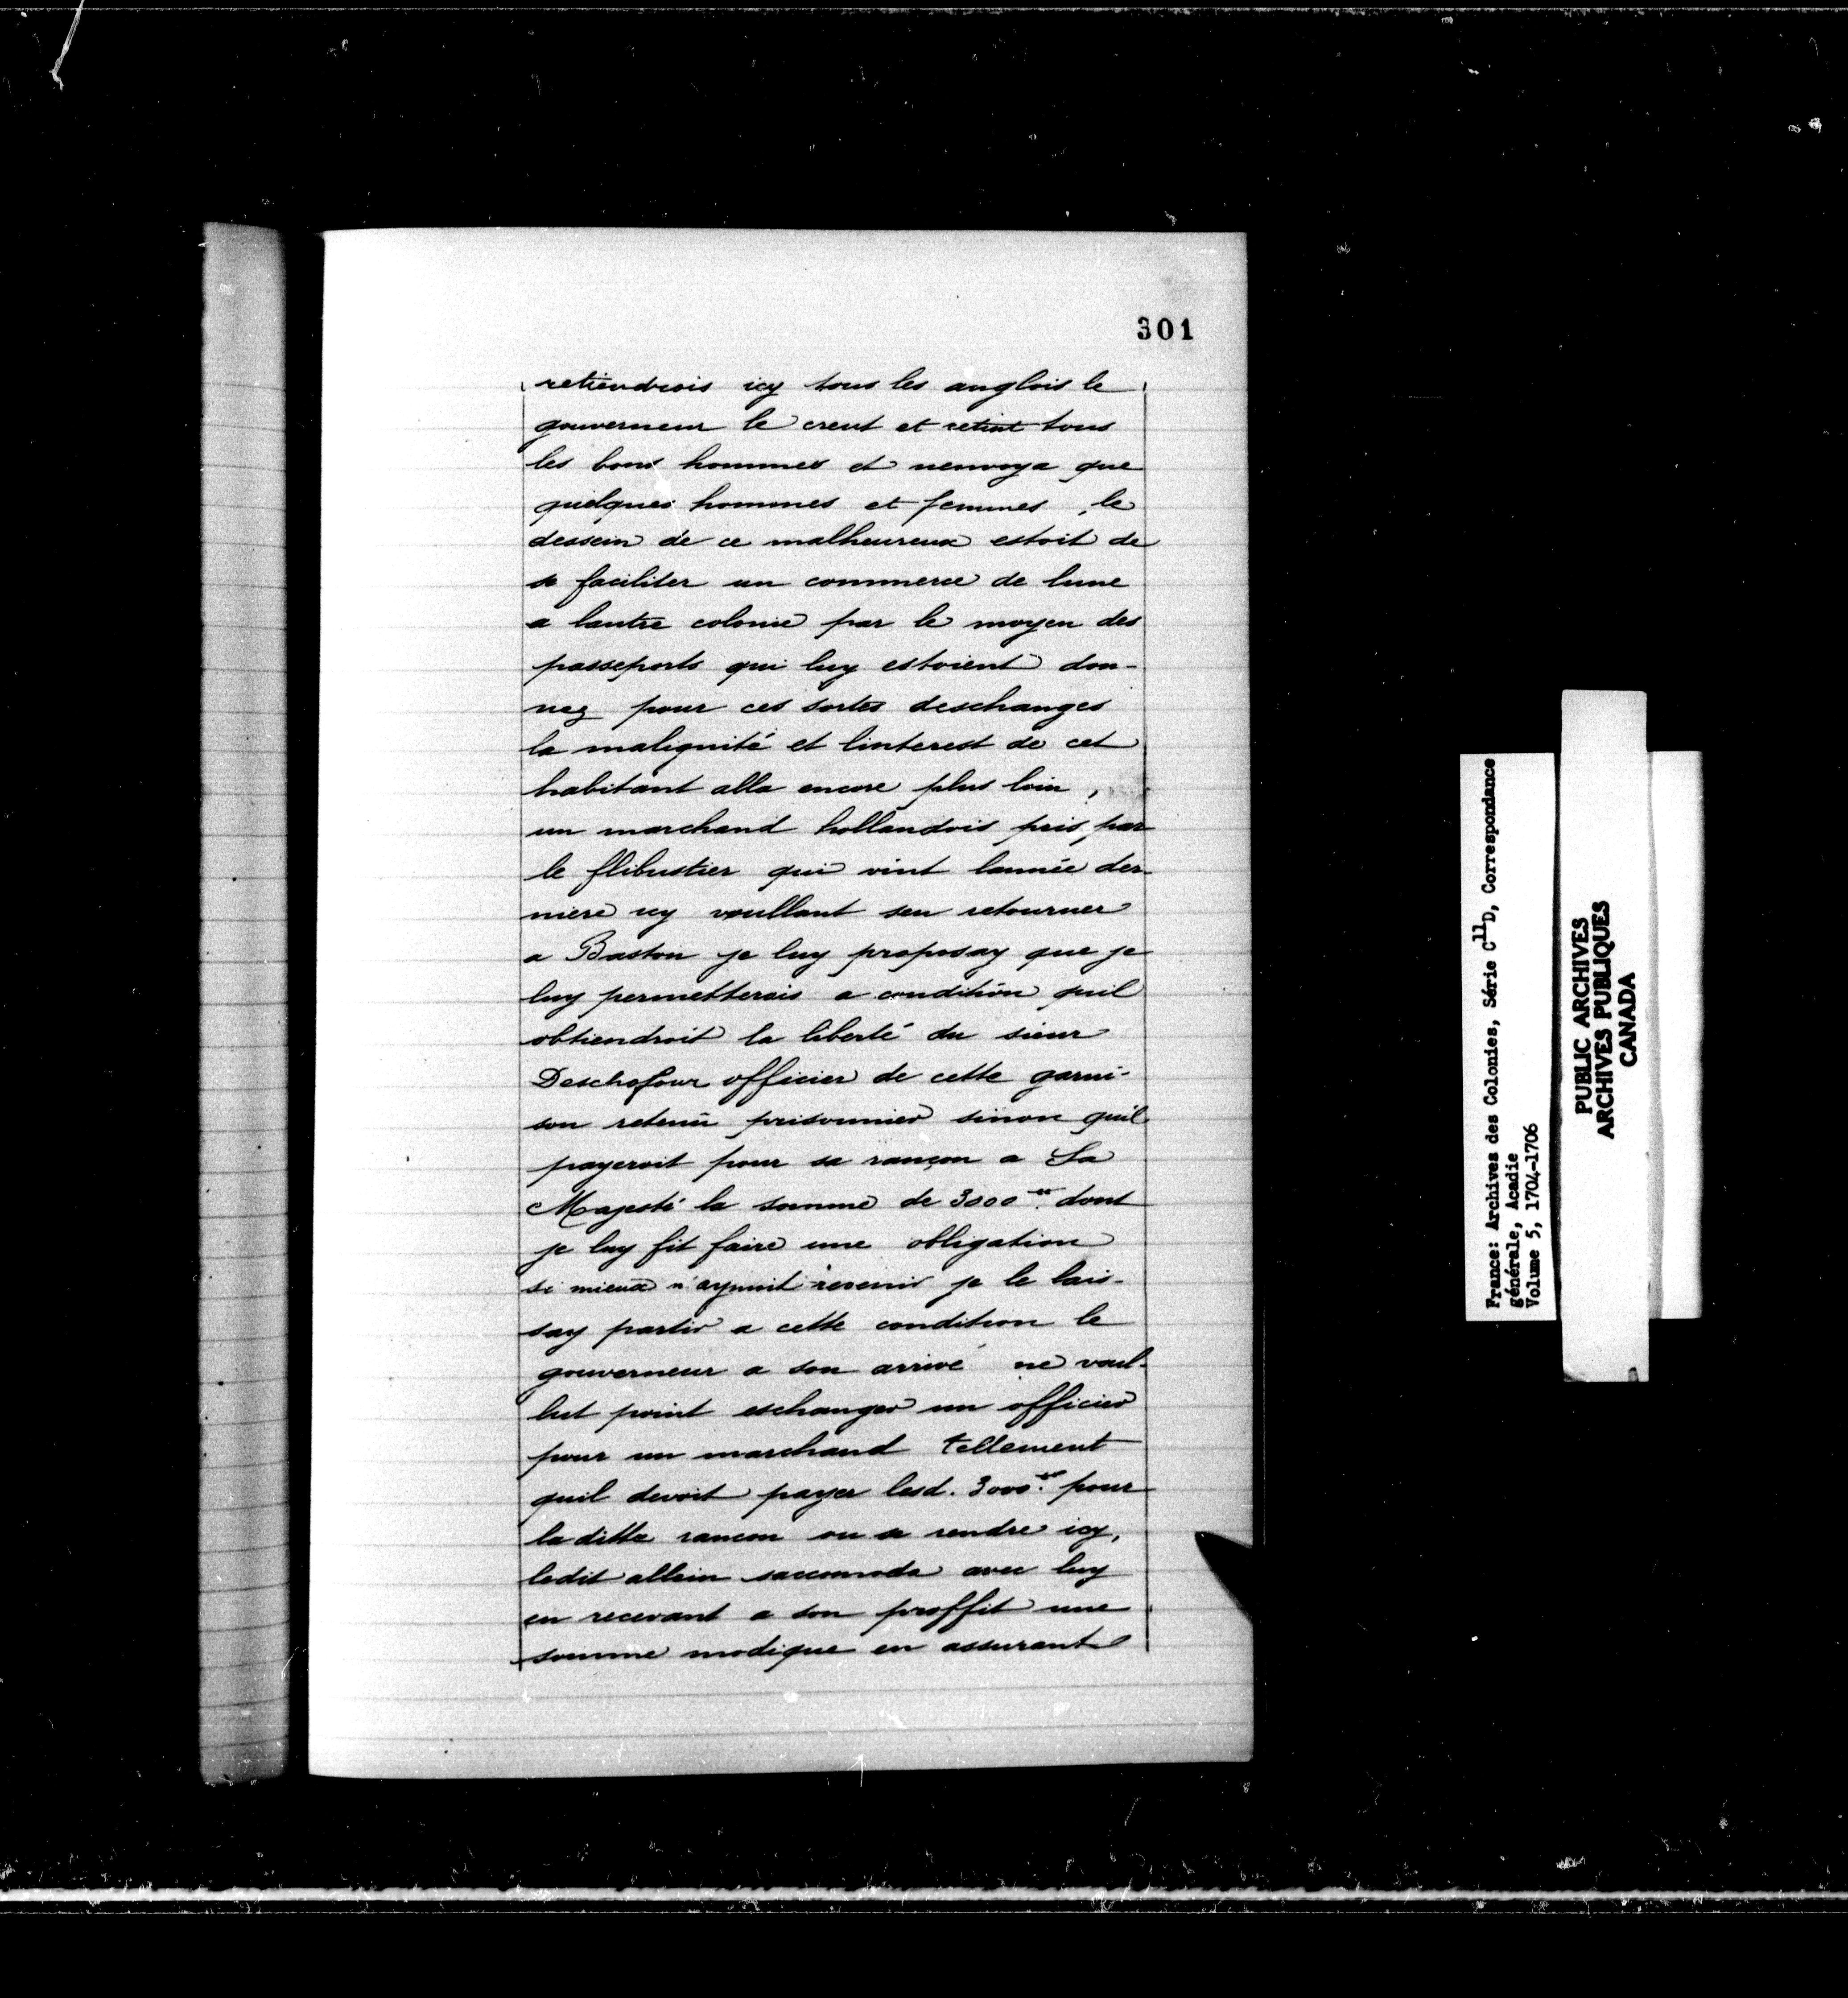 301
retiendrois icy tous les anglois le
gouverneur le creut et retint tous
les bons hommes et nenvoya que
quelques hommes et femmes, le
dessein de ce malheureux estoit de
se faciliter un commerce de lune
a lautre colonie par le moyen des
passeports qui luy estoient don-
nez pour ces sortes deschanges
la malignité et linterest de cet
habitant alla encore plus loin,
un marchand hollandois pris par
le flibustier qui vint lannée der-
niere icy voullant sen retourner
a Baston je luy proposay que je
luy permetterais a condition quil
obtiendroit la liberté du sieur
Deschofour officier de cette garni-
son retenu prisonnier sinon quil
payeroit pour sa rançon a Sa
Majesté la somme de 3000 ᵗᵗ. dont
je luy fit faire une obligation
si mieux n'aymoit revenir je le lais-
say partir a cette condition le
gouverneur a son arrivé ne voul-
lut point eschanger un officier
pour un marchand tellement
quil devoit payer lesd. 3000 ᵗᵗ. pour
la ditte rancon ou se rendre icy,
ledit allein saccomoda avec luy
en recevant a son proffit une
somme modique en assurant
France: Archives des Colonies, Série C11D, Correspondance
générale, Acadie
Volume 5, 1704-1706
PUBLIC ARCHIVES
ARCHIVES PUBLIQUES
CANADA